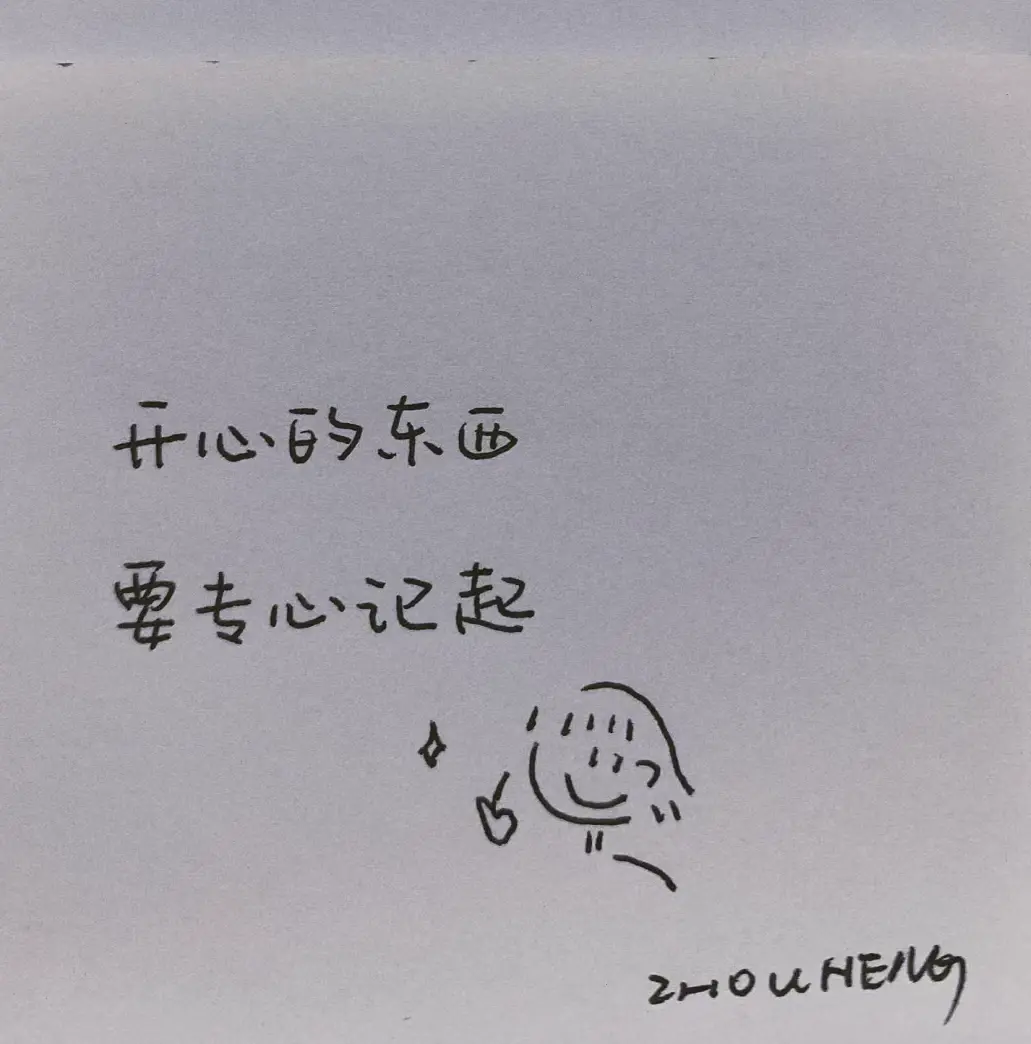 开心的东西
要专心记起
ZHOUHENG